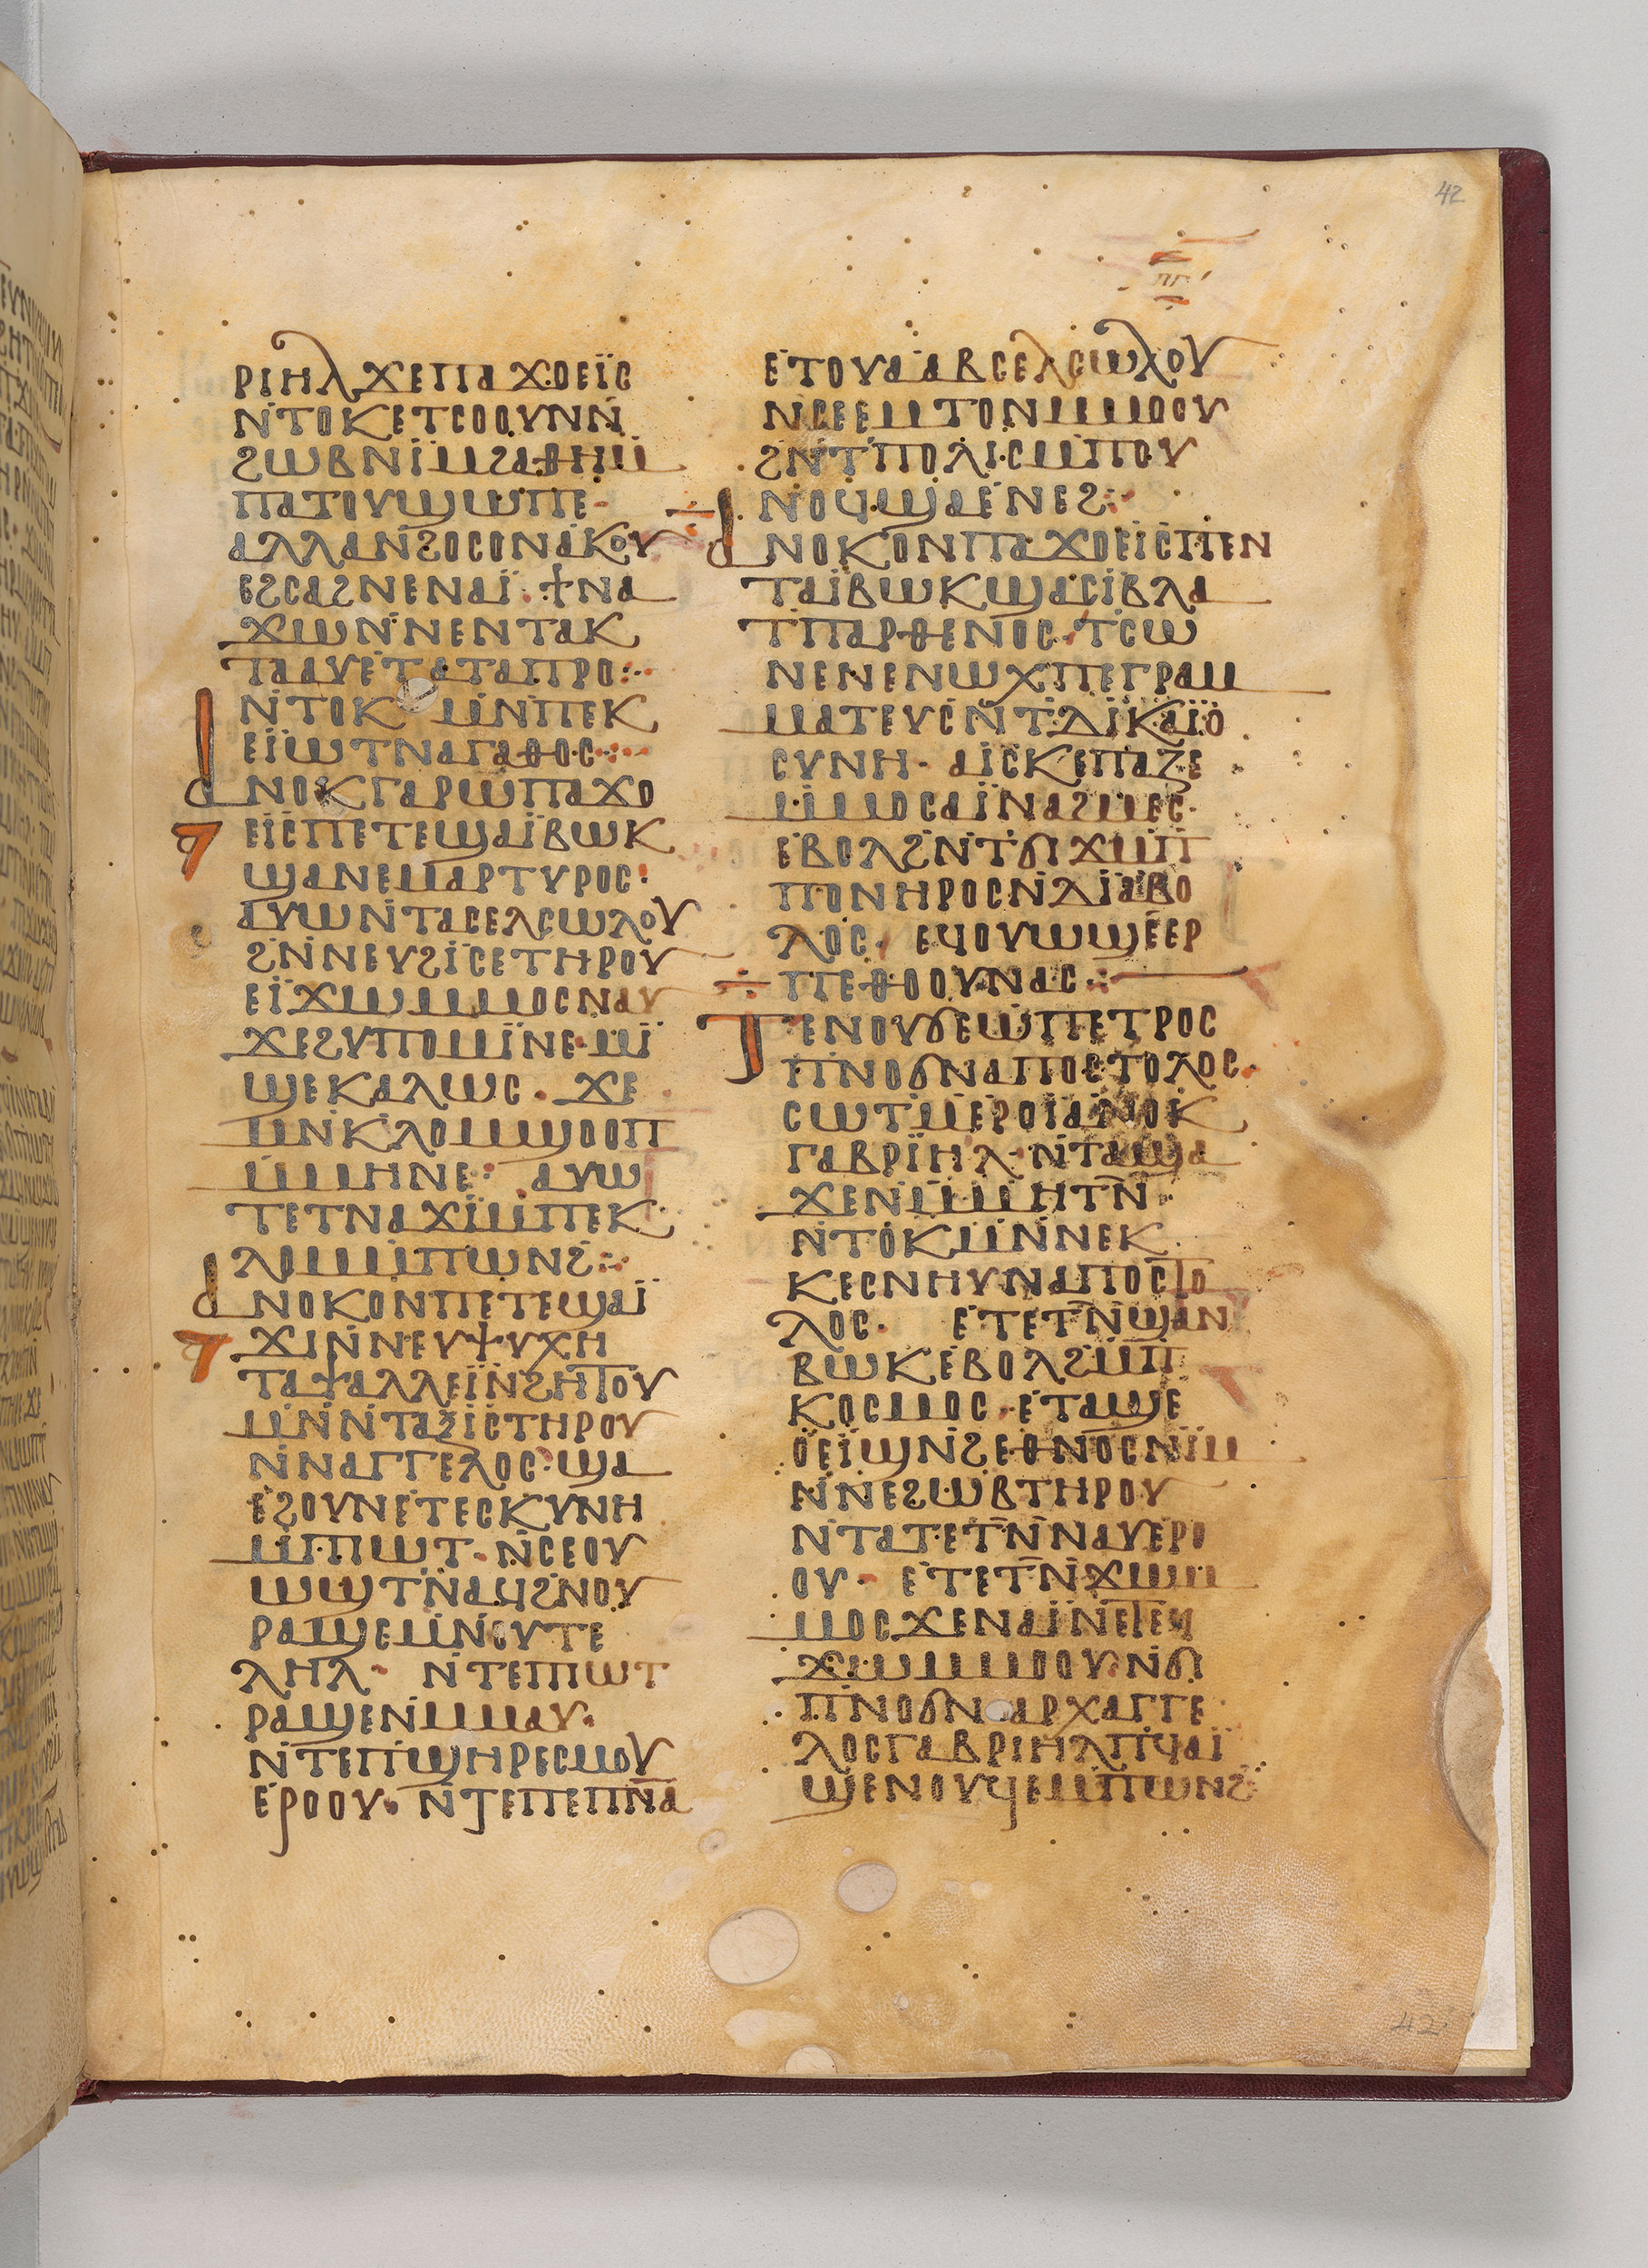 42
ⲡⲅ
ⲣⲓⲏⲗ ϫⲉⲡⲁϫⲟⲉⲓ̈ⲥ
ⲛ̇ⲧⲟⲕⲉⲧⲥⲟⲟⲩⲛⲛ̇
ϩⲱⲃⲛⲓ̈ⲙϩⲁⲑⲏⲙ̇
ⲡⲁⲧⲟⲩϣⲱⲡⲉ·
ⲁⲗⲗⲁⲛ̇ϩⲟⲥⲟⲛⲁⲕⲟⲩ
ⲉϩⲥⲁϩⲛⲉⲛⲁⲓ̈· ϯⲛⲁ
ϫⲱⲛ̇ⲛⲉⲛⲧⲁⲕ
ⲧⲁⲁⲩⲉⲧⲁⲧⲁⲡⲣⲟ:·
ⲛ̇ⲧⲟⲕ ⲙⲛ̇ⲡⲉⲕ
ⲉⲓ̈ⲱⲧⲛⲁⲅⲁⲑⲟⲥ:·
ⲁⲛⲟⲕⲅⲁⲣⲱⲡⲁϫⲟ
ⲉⲓ̈ⲥⲡⲉⲧⲉϣⲁⲓ̈ⲃⲱⲕ
ϣⲁⲛⲉⲙⲁⲣⲧⲩⲣⲟⲥ:
ⲁⲩⲱⲛ̇ⲧⲁⲥⲉⲗⲥⲱⲗⲟⲩ
ϩⲛ̇ⲛⲉⲩϩⲓ̈ⲥⲉⲧⲏⲣⲟⲩ
ⲉⲓ̈ϫⲱⲙ̇ⲙⲟⲥⲛⲁⲩ
ϫⲉϩⲩⲡⲟⲙⲓ̈ⲛⲉ·ⲙⲓ̈
ϣⲉⲕⲁⲗⲱⲥ· ϫⲉ
ⲙⲛ̇ⲕⲗⲟⲙϣⲟⲟⲡ
ⲙ̇ⲙⲏⲛⲉ: ⲁⲩⲱ
ⲧⲉⲧⲛⲁϫⲓ̈ⲙ̇ⲡⲉⲕ
ⲗⲟⲙⲙ̇ⲡⲱⲛϩ̇:·
ⲁⲛⲟⲕⲟⲛⲡⲉⲧⲉϣⲁⲓ̈
ϫⲓⲛ̇ⲛⲉⲩⲯⲩⲭⲏ
ⲧⲁⲯⲁⲗⲗⲉⲓ̈ⲛ̇ϩⲏⲧⲟⲩ
ⲙⲛ̇ⲛ̇ⲧⲁⲝⲓ̈ⲥⲧⲏⲣⲟⲩ
ⲛ̇ⲛⲁⲅⲅⲉⲗⲟⲥ·ϣⲁ
ⲉϩⲟⲩⲛⲉⲧⲉⲥⲕⲩⲛⲏ
ⲙ̇ⲡⲓⲱⲧ·ⲛ̇ⲥⲉⲟⲩ
ⲱϣⲧⲛ̇ⲁϥϩⲛ̇ⲟⲩ
ⲣⲁϣⲉⲙⲛ̇ⲟⲩⲧⲉ
ⲗⲏⲗ· ⲛ̇ⲧⲉⲡⲓⲱⲧ
ⲣⲁϣⲉⲛⲙ̇ⲙⲁⲩ·
ⲛ̇ⲧⲉⲡ̇ϣⲏⲣⲉⲥⲙⲟⲩ
ⲉ̇ⲣⲟⲟⲩ· ⲛ̇ⲧⲉⲡⲉⲡⲛ̅ⲁ̅
ⲉ̇ⲧⲟⲩⲁⲁⲃⲥⲉⲗⲥⲱⲗⲟⲩ
ⲛ̇ⲥⲉⲉⲙⲧⲟⲛⲙ̇ⲙⲟⲟⲩ
ϩⲛ̇ⲧⲡⲟⲗⲓ·ⲥⲙ̇ⲡⲟⲩ
ⲛⲟϥ·ϣⲁⲉ̇ⲛⲉϩ:·
ⲁⲛⲟⲕⲟⲛⲡⲁϫⲟⲉⲓ̈ⲥⲡⲉⲛ
ⲧⲁⲓ̈ⲃⲱⲕϣⲁⲥⲓ̈ⲃⲗⲁ
ⲧⲡⲁⲣⲑⲉⲛⲟⲥ·ⲧⲥⲱ
ⲛⲉⲛⲉⲛⲱⲭⲡⲉⲅⲣⲁⲙ
ⲙⲁⲧⲉⲩⲥⲛ̇ⲧⲇⲓ̈ⲕⲁⲓ̈ⲟ
ⲥⲩⲛⲏ· ⲁⲓ̈ⲥⲕⲉⲡⲁⲍⲉ
ⲙ̇ⲙⲟⲥⲁⲓ̈ⲛⲁϩⲙⲉⲥ·
ⲉ̇ⲃⲟⲗϩⲛ̇ⲧϭⲓϫⲙ̇ⲡ
ⲡⲟⲛⲏⲣⲟⲥⲛ̇ⲇⲓ̈ⲁⲃⲟ
ⲗⲟⲥ· ⲉϥⲟⲩⲱϣⲉ̇ⲉⲣ
ⲡⲉⲑⲟⲟⲩⲛⲁⲥ:·
ⲧⲉⲛⲟⲩϭⲉⲱⲡⲉⲧⲣⲟⲥ
ⲡ̇ⲛⲟϭⲛⲁⲡⲟⲥⲧⲟⲗⲟⲥ·
ⲥⲱⲧⲙ̇ⲉ̇ⲣⲟⲓ̈ⲁⲛⲟⲕ
ⲅⲁⲃⲣⲓ̈ⲏⲗ·ⲛ̇ⲧⲁϣⲁ
ϫⲉⲛⲙ̇ⲙⲏⲧⲛ̅·
ⲛ̇ⲧⲟⲕⲙⲛ̇ⲛⲉⲕ
ⲕⲉⲥⲛⲏⲩⲛⲁⲡⲟⲥⲧⲟ
ⲗⲟⲥ· ⲉ̇ⲧⲉⲧⲛ̅ϣⲁⲛ
ⲃⲱⲕⲉ̇ⲃⲟⲗϩⲙ̇ⲡ
ⲕⲟⲥⲙⲟⲥ·ⲉ̇ⲧⲁϣⲉ
ⲟⲉⲓ̈ϣⲛ̇ϩⲉⲑⲛⲟⲥⲛⲓ̈ⲙ
ⲛ̇ⲛⲉϩⲱⲃⲧⲏⲣⲟⲩ
ⲛ̇ⲧⲁⲧⲉⲧⲛ̅ⲛⲁⲩⲉⲣⲟ
ⲟⲩ· ⲉ̇ⲧⲉⲧⲛ̅ϫⲱⲙ̇
ⲙⲟⲥϫⲉⲛⲁⲓ̈ⲛⲉⲧⲉϥ
ϫⲱⲙ̇ⲙⲟⲟⲩ·ⲛ̇ϭⲓ
ⲡ̇ⲛⲟϭⲛ ⲁⲣⲭⲁⲅⲅⲉ
ⲗⲟⲥⲅⲁⲃⲣⲓⲏⲗⲡ̇ϥⲁⲓ̈
ϣⲉⲛⲟⲩϥⲉⲙ̇ⲡⲱⲛϩ̇
42